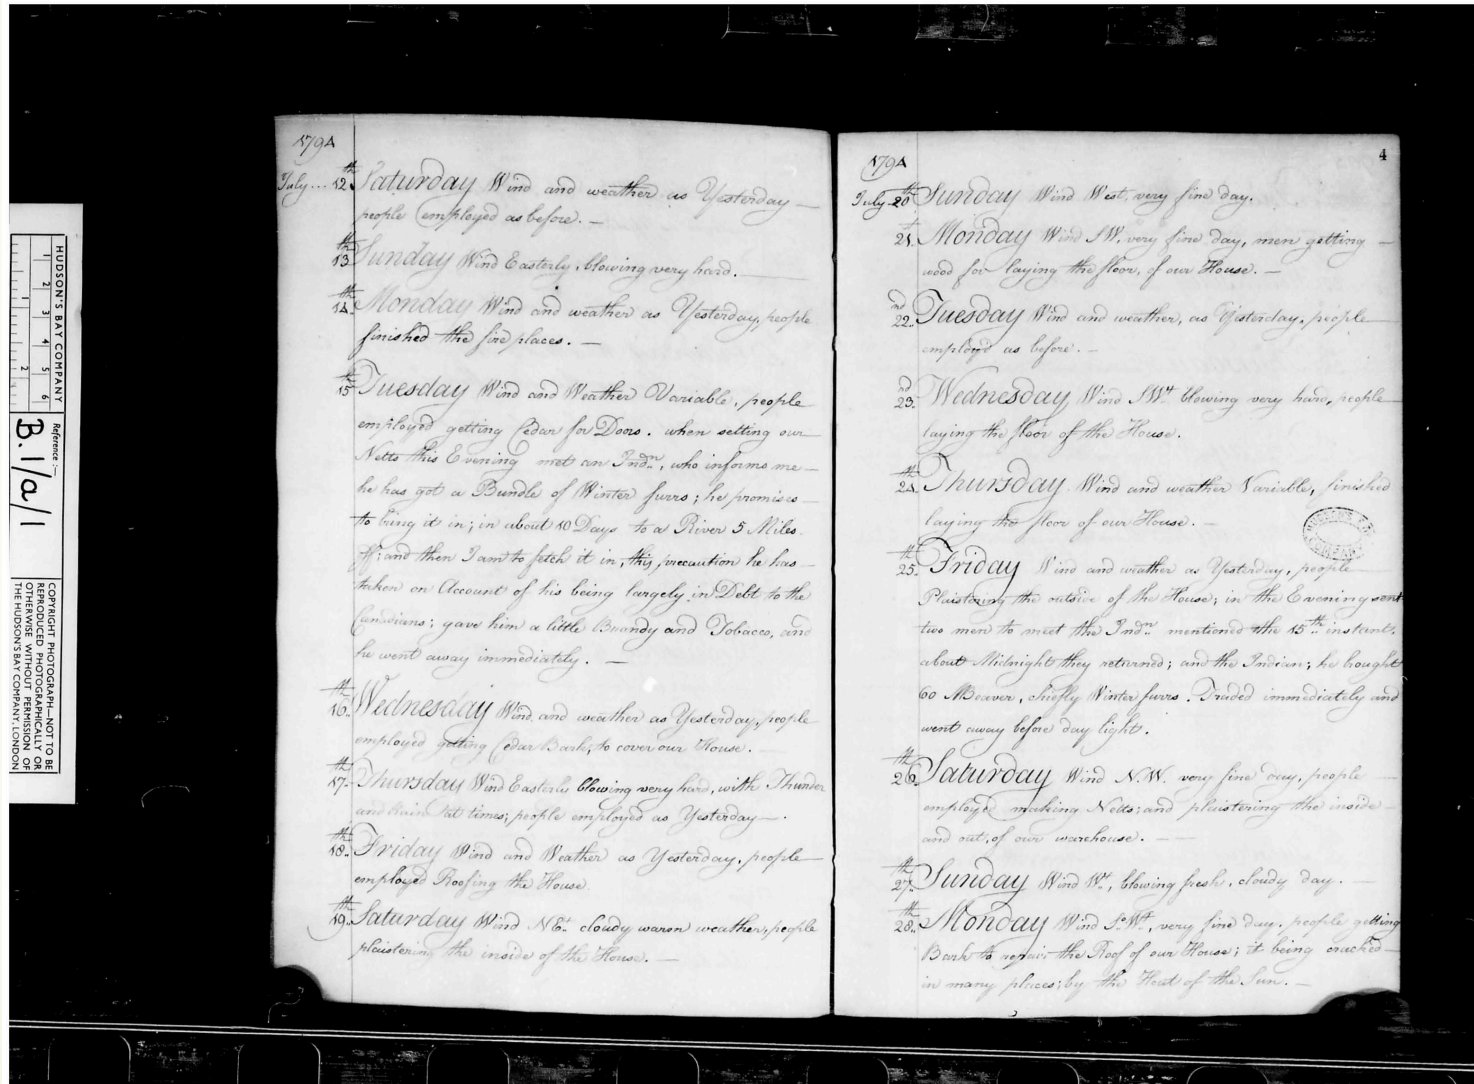 HUDSON'S BAY COMPANY
1 2 3 4 5 6
1 2
Reference :-
B.1/a/1
COPYRIGHT PHOTOGRAPH—NOT TO BE
REPRODUCED PHOTOGRAPHICALLY OR
OTHERWISE WITHOUT PERMISSION OF
THE HUDSON'S BAY COMPANY, LONDON
1794
July... 12th Saturday Wind and weather as Yesterday —
people employed as before. —
13th Sunday Wind Easterly, blowing very hard. —
14th Monday Wind and weather as Yesterday, people
finished the fire places. —
15th Tuesday Wind and Weather Variable, people
employed getting Cedar for Doors. when setting our
Netts this Evening met an Indn, who informs me —
he has got a Bundle of Winter furrs; he promises
to bring it in; in about 10 Days to a River 5 Miles
off; and then I am to fetch it in, this precaution he has
taken on Account of his being largely in Debt to the
Canadians; gave him a little Brandy and Tobacco, and
he went away immediately. —
16th Wednesday Wind and weather as Yesterday, people
employed getting Cedar Bark, to cover our House. —
17th Thursday Wind Easterly blowing very hard, with Thunder
and Rain at times; people employed as Yesterday —.
18th Friday Wind and Weather as Yesterday, people
employed Roofing the House.
19th Saturday Wind NEt. cloudy warm weather, people
plaistering the inside of the House. —
4
1794
July 20th Sunday Wind West, very fine day.
21st Monday Wind SW, very fine day, men getting —
wood for laying the floor, of our House. —
22nd Tuesday Wind and weather, as Yesterday, people
employ'd as before. —
23nd Wednesday Wind SWt blowing very hard, people
laying the floor of the House.
24th Thursday Wind and weather Variable, finished
laying the floor of our House. —
HUDSON'S BAY
COMPANY
25th Friday Wind and weather as Yesterday, people
Plaistering the outside of the House; in the Evening sent
two men to meet the Indn mentioned the 15th instant.
about Midnight they returned; and the Indian; he bought
60 MBeaver, chiefly Winter furrs. Traded immediately and
went away before day light.
26th Saturday Wind N.W. very fine day, people
employed making Netts; and plaistering the inside
and out, of our warehouse. —
27th Sunday Wind Wt, blowing fresh, cloudy day. —
28th Monday Wind So Wt, very fine day. people getting
Bark to repair the Roof of our House; it being cracked
in many places; by the Heat of the Sun. —